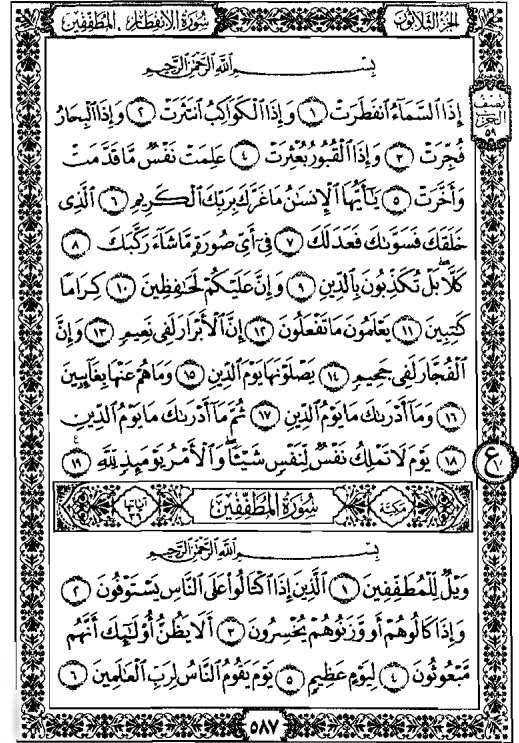 الجزء الثلاثون
سورة الانفطار . المطففين
نصف
الحزب
٥٩
بِسْمِ اللَّهِ الرَّحْمَٰنِ الرَّحِيمِ
إِذَا ٱلسَّمَآءُ ٱنفَطَرَتْ ١ وَإِذَا ٱلْكَوَاكِبُ ٱنتَثَرَتْ ٢ وَإِذَا ٱلْبِحَارُ
فُجِّرَتْ ٣ وَإِذَا ٱلْقُبُورُ بُعْثِرَتْ ٤ عَلِمَتْ نَفْسٌ مَّا قَدَّمَتْ
وَأَخَّرَتْ ٥ يَـٰٓأَيُّهَا ٱلْإِنسَـٰنُ مَا غَرَّكَ بِرَبِّكَ ٱلْكَرِيمِ ٦ ٱلَّذِى
خَلَقَكَ فَسَوَّىٰكَ فَعَدَلَكَ ٧ فِىٓ أَىِّ صُورَةٍ مَّا شَآءَ رَكَّبَكَ ٨
كَلَّا بَلْ تُكَذِّبُونَ بِٱلدِّينِ ٩ وَإِنَّ عَلَيْكُمْ لَحَـٰفِظِينَ ١٠ كِرَامًا
كَـٰتِبِينَ ١١ يَعْلَمُونَ مَا تَفْعَلُونَ ١٢ إِنَّ ٱلْأَبْرَارَ لَفِى نَعِيمٍ ١٣ وَإِنَّ
ٱلْفُجَّارَ لَفِى جَحِيمٍ ١٤ يَصْلَوْنَهَا يَوْمَ ٱلدِّينِ ١٥ وَمَا هُمْ عَنْهَا بِغَآئِبِينَ
١٦ وَمَآ أَدْرَىٰكَ مَا يَوْمُ ٱلدِّينِ ١٧ ثُمَّ مَآ أَدْرَىٰكَ مَا يَوْمُ ٱلدِّينِ
١٨ يَوْمَ لَا تَمْلِكُ نَفْسٌ لِّنَفْسٍ شَيْـًٔا ۖ وَٱلْأَمْرُ يَوْمَئِذٍ لِّلَّهِ ١٩
ع
مكية
سورة المطففين
آياتها ٣٦
بِسْمِ اللَّهِ الرَّحْمَٰنِ الرَّحِيمِ
وَيْلٌ لِّلْمُطَفِّفِينَ ١ ٱلَّذِينَ إِذَا ٱكْتَالُوا۟ عَلَى ٱلنَّاسِ يَسْتَوْفُونَ ٢
وَإِذَا كَالُوهُمْ أَو وَّزَنُوهُمْ يُخْسِرُونَ ٣ أَلَا يَظُنُّ أُو۟لَـٰٓئِكَ أَنَّهُم
مَّبْعُوثُونَ ٤ لِيَوْمٍ عَظِيمٍ ٥ يَوْمَ يَقُومُ ٱلنَّاسُ لِرَبِّ ٱلْعَـٰلَمِينَ ٦
٥٨٧